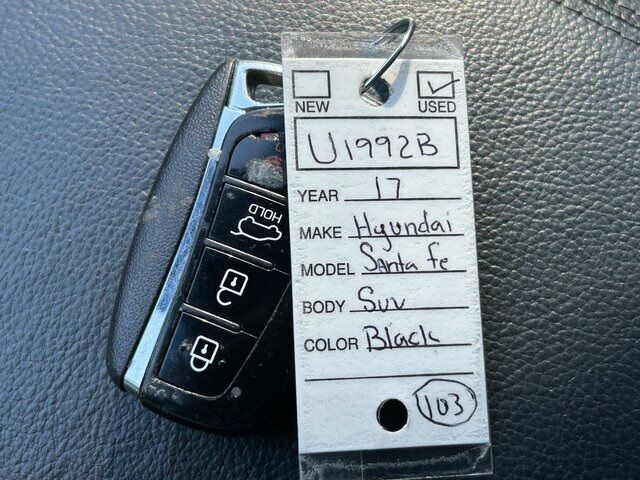 NEW USED
U1992B
YEAR 17
MAKE Hyundai
MODEL Santa fe
BODY Suv
COLOR Black
103
HOLD